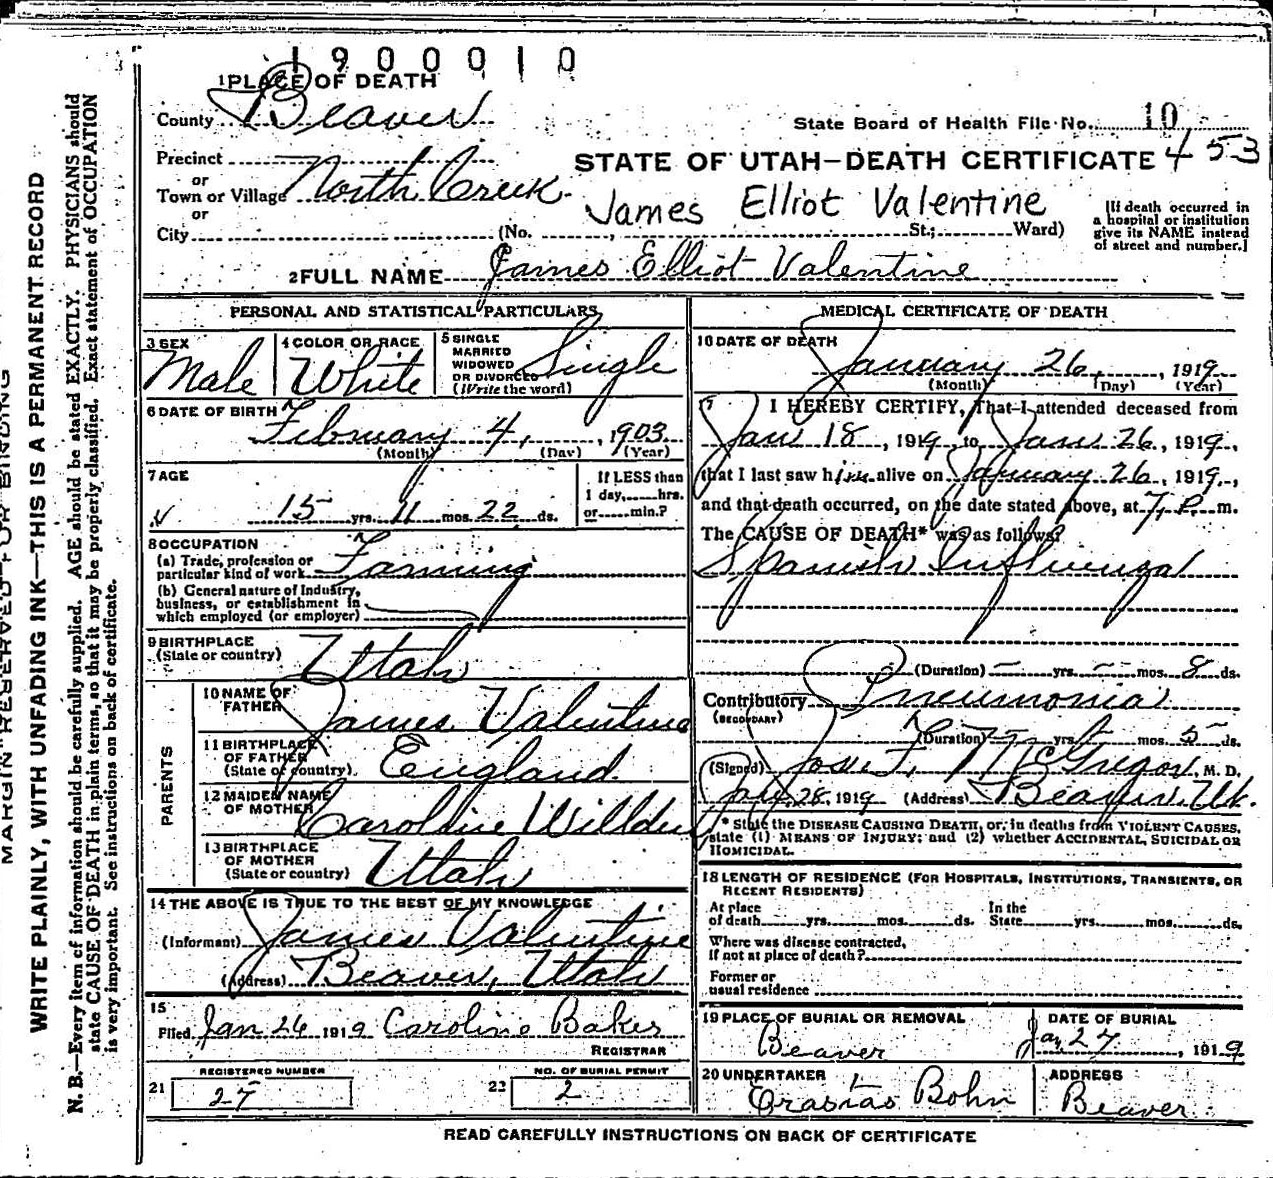 1900010
1 PLACE OF DEATH
County Beaver
State Board of Health File No. 10
Precinct
STATE OF UTAH—DEATH CERTIFICATE 453
or
Town or Village North Creek
James Elliot Valentine
or
City (No. St.; Ward)
[If death occurred in
a hospital or institution
give its NAME instead
of street and number.]
2 FULL NAME James Elliot Valentine
PERSONAL AND STATISTICAL PARTICULARS
3 SEX
Male
4 COLOR OR RACE
White
5 SINGLE
MARRIED
WIDOWED
OR DIVORCED
(Write the word)
Single
6 DATE OF BIRTH
February 4, 1903
(Month) (Day) (Year)
7 AGE
15 yrs. 11 mos. 22 ds.
If LESS than
1 day, hrs.
or min.?
8 OCCUPATION
(a) Trade, profession or
particular kind of work Farming
(b) General nature of Industry,
business, or establishment in
which employed (or employer)
9 BIRTHPLACE
(State or country) Utah
PARENTS
10 NAME OF
FATHER James Valentine
11 BIRTHPLACE
OF FATHER
(State or country) England
12 MAIDEN NAME
OF MOTHER Caroline Willden
13 BIRTHPLACE
OF MOTHER
(State or country) Utah
14 THE ABOVE IS TRUE TO THE BEST OF MY KNOWLEDGE
(Informant) James Valentine
(Address) Beaver, Utah
15
Filed Jan 26 1919 Caroline Baker
REGISTRAR
REGISTERED NUMBER
21 27
NO. OF BURIAL PERMIT
22 2
MEDICAL CERTIFICATE OF DEATH
16 DATE OF DEATH
January 26, 1919
(Month) (Day) (Year)
17 I HEREBY CERTIFY, That I attended deceased from
Jan 18, 1919, to Jan 26, 1919,
that I last saw him alive on January 26, 1919,
and that death occurred, on the date stated above, at 7 P. m.
The CAUSE OF DEATH* was as follows:
Spanish Influenza
(Duration) — yrs. — mos. 8 ds.
Contributory Pneumonia
(SECONDARY)
(Duration) yrs. mos. 5 ds.
(Signed) McGregor, M. D.
Jan. 28. 1919 (Address) Beaver, Ut.
* State the DISEASE CAUSING DEATH, or, in deaths from VIOLENT CAUSES,
state (1) MEANS OF INJURY; and (2) whether ACCIDENTAL, SUICIDAL OR
HOMICIDAL.
18 LENGTH OF RESIDENCE (FOR HOSPITALS, INSTITUTIONS, TRANSIENTS, OR
RECENT RESIDENTS)
At place
of death yrs. mos. ds.
In the
State yrs. mos. ds.
Where was disease contracted,
If not at place of death?
Former or
usual residence
19 PLACE OF BURIAL OR REMOVAL
Beaver
DATE OF BURIAL
Jan 27, 1919
20 UNDERTAKER
Bohn
ADDRESS
Beaver
READ CAREFULLY INSTRUCTIONS ON BACK OF CERTIFICATE
MARGIN RESERVED FOR BINDING
WRITE PLAINLY, WITH UNFADING INK—THIS IS A PERMANENT RECORD
N. B.—Every item of information should be carefully supplied. AGE should be stated EXACTLY. PHYSICIANS should
state CAUSE OF DEATH in plain terms, so that it may be properly classified. Exact statement of OCCUPATION
is very important. See instructions on back of certificate.